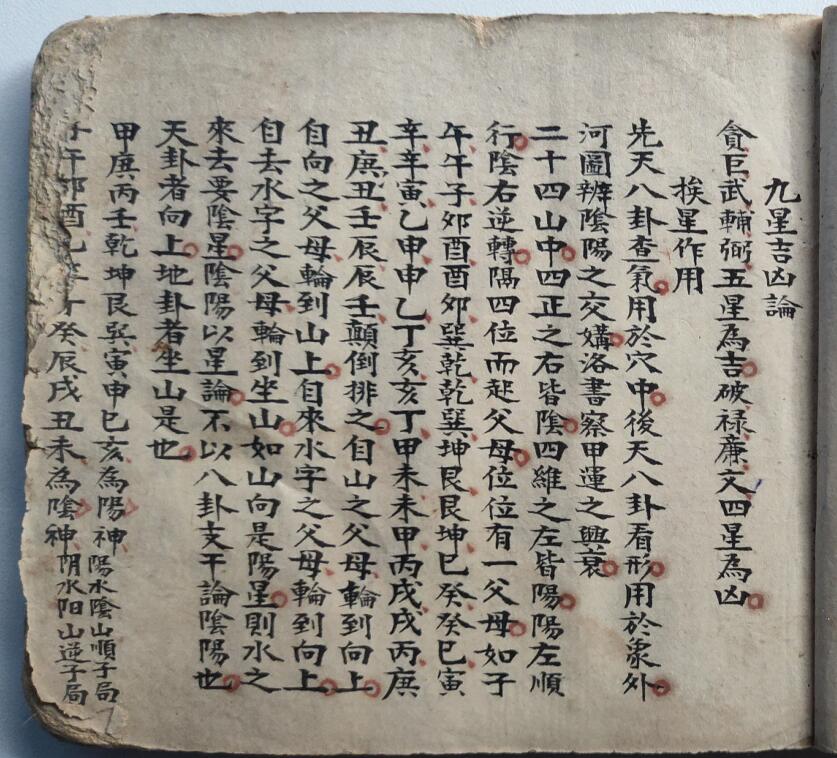 九星吉凶論
貪巨武輔弼五星為吉破禄廉文四星為凶
挨星作用
先天八卦查氣用於穴中後天八卦看形用於象外
河圖辨陰陽之交媾洛書察甲運之興衰
二十四山中四正之右皆陰四維之左皆陽陽左順
行陰右逆轉隅四位而起父母位位有一父母如子
午午子夘酉酉夘巽乾乾巽坤艮艮坤巳癸癸巳寅
辛辛寅乙申申乙丁亥亥丁甲未未甲丙戌戌丙庚
丑庚丑壬辰辰壬顛倒排之自山之父母輪到向上
自向之父母輪到山上自來水字之父母輪到向上
自去水字之父母輪到坐山如山向是陽星則水之
來去要陰星陰陽以星論不以八卦支干論陰陽也
天卦者向上地卦者坐山是也
甲庚丙壬乾坤艮巽寅申巳亥為陽神陽水陰山順子局
午夘酉癸辰戌丑未為陰神阴水阳山逆子局